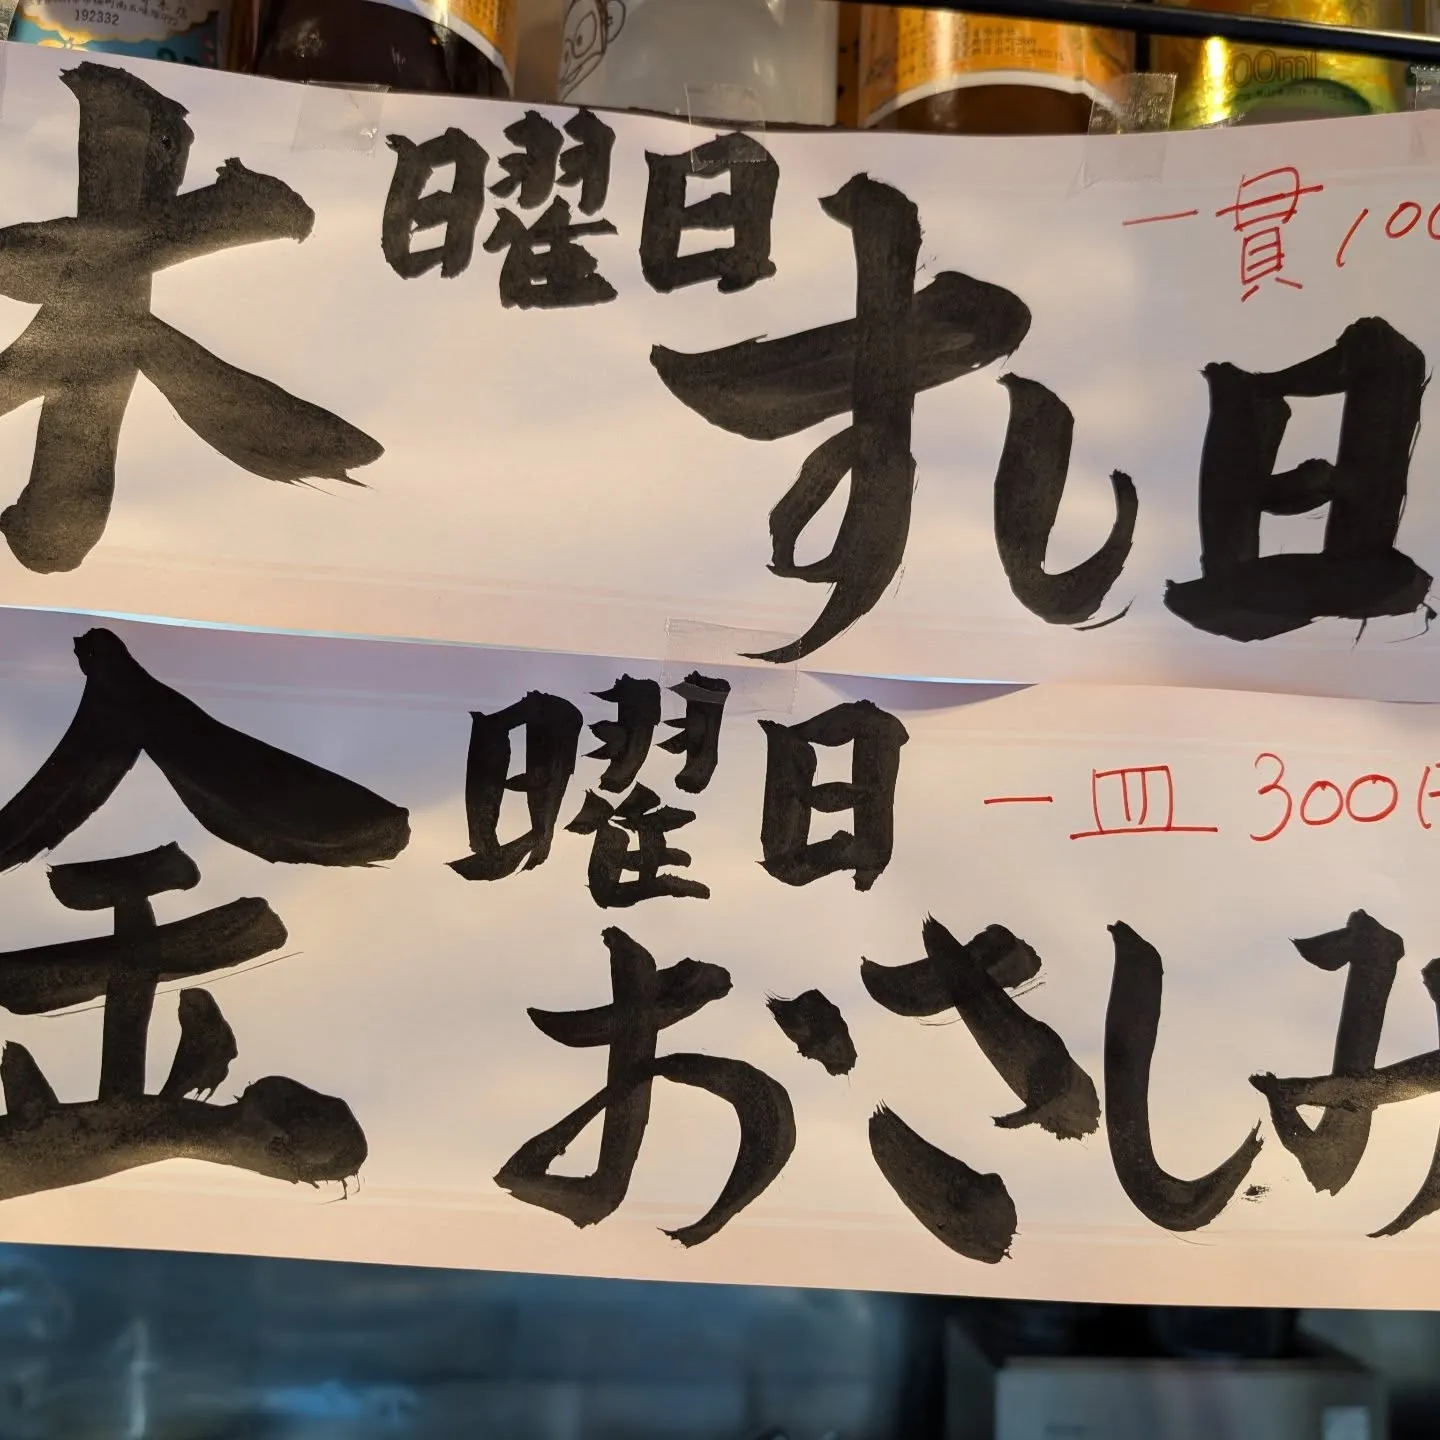 192332
00ml
木曜日 一貫100
すし日
金曜日 一皿 300円
おさしみ